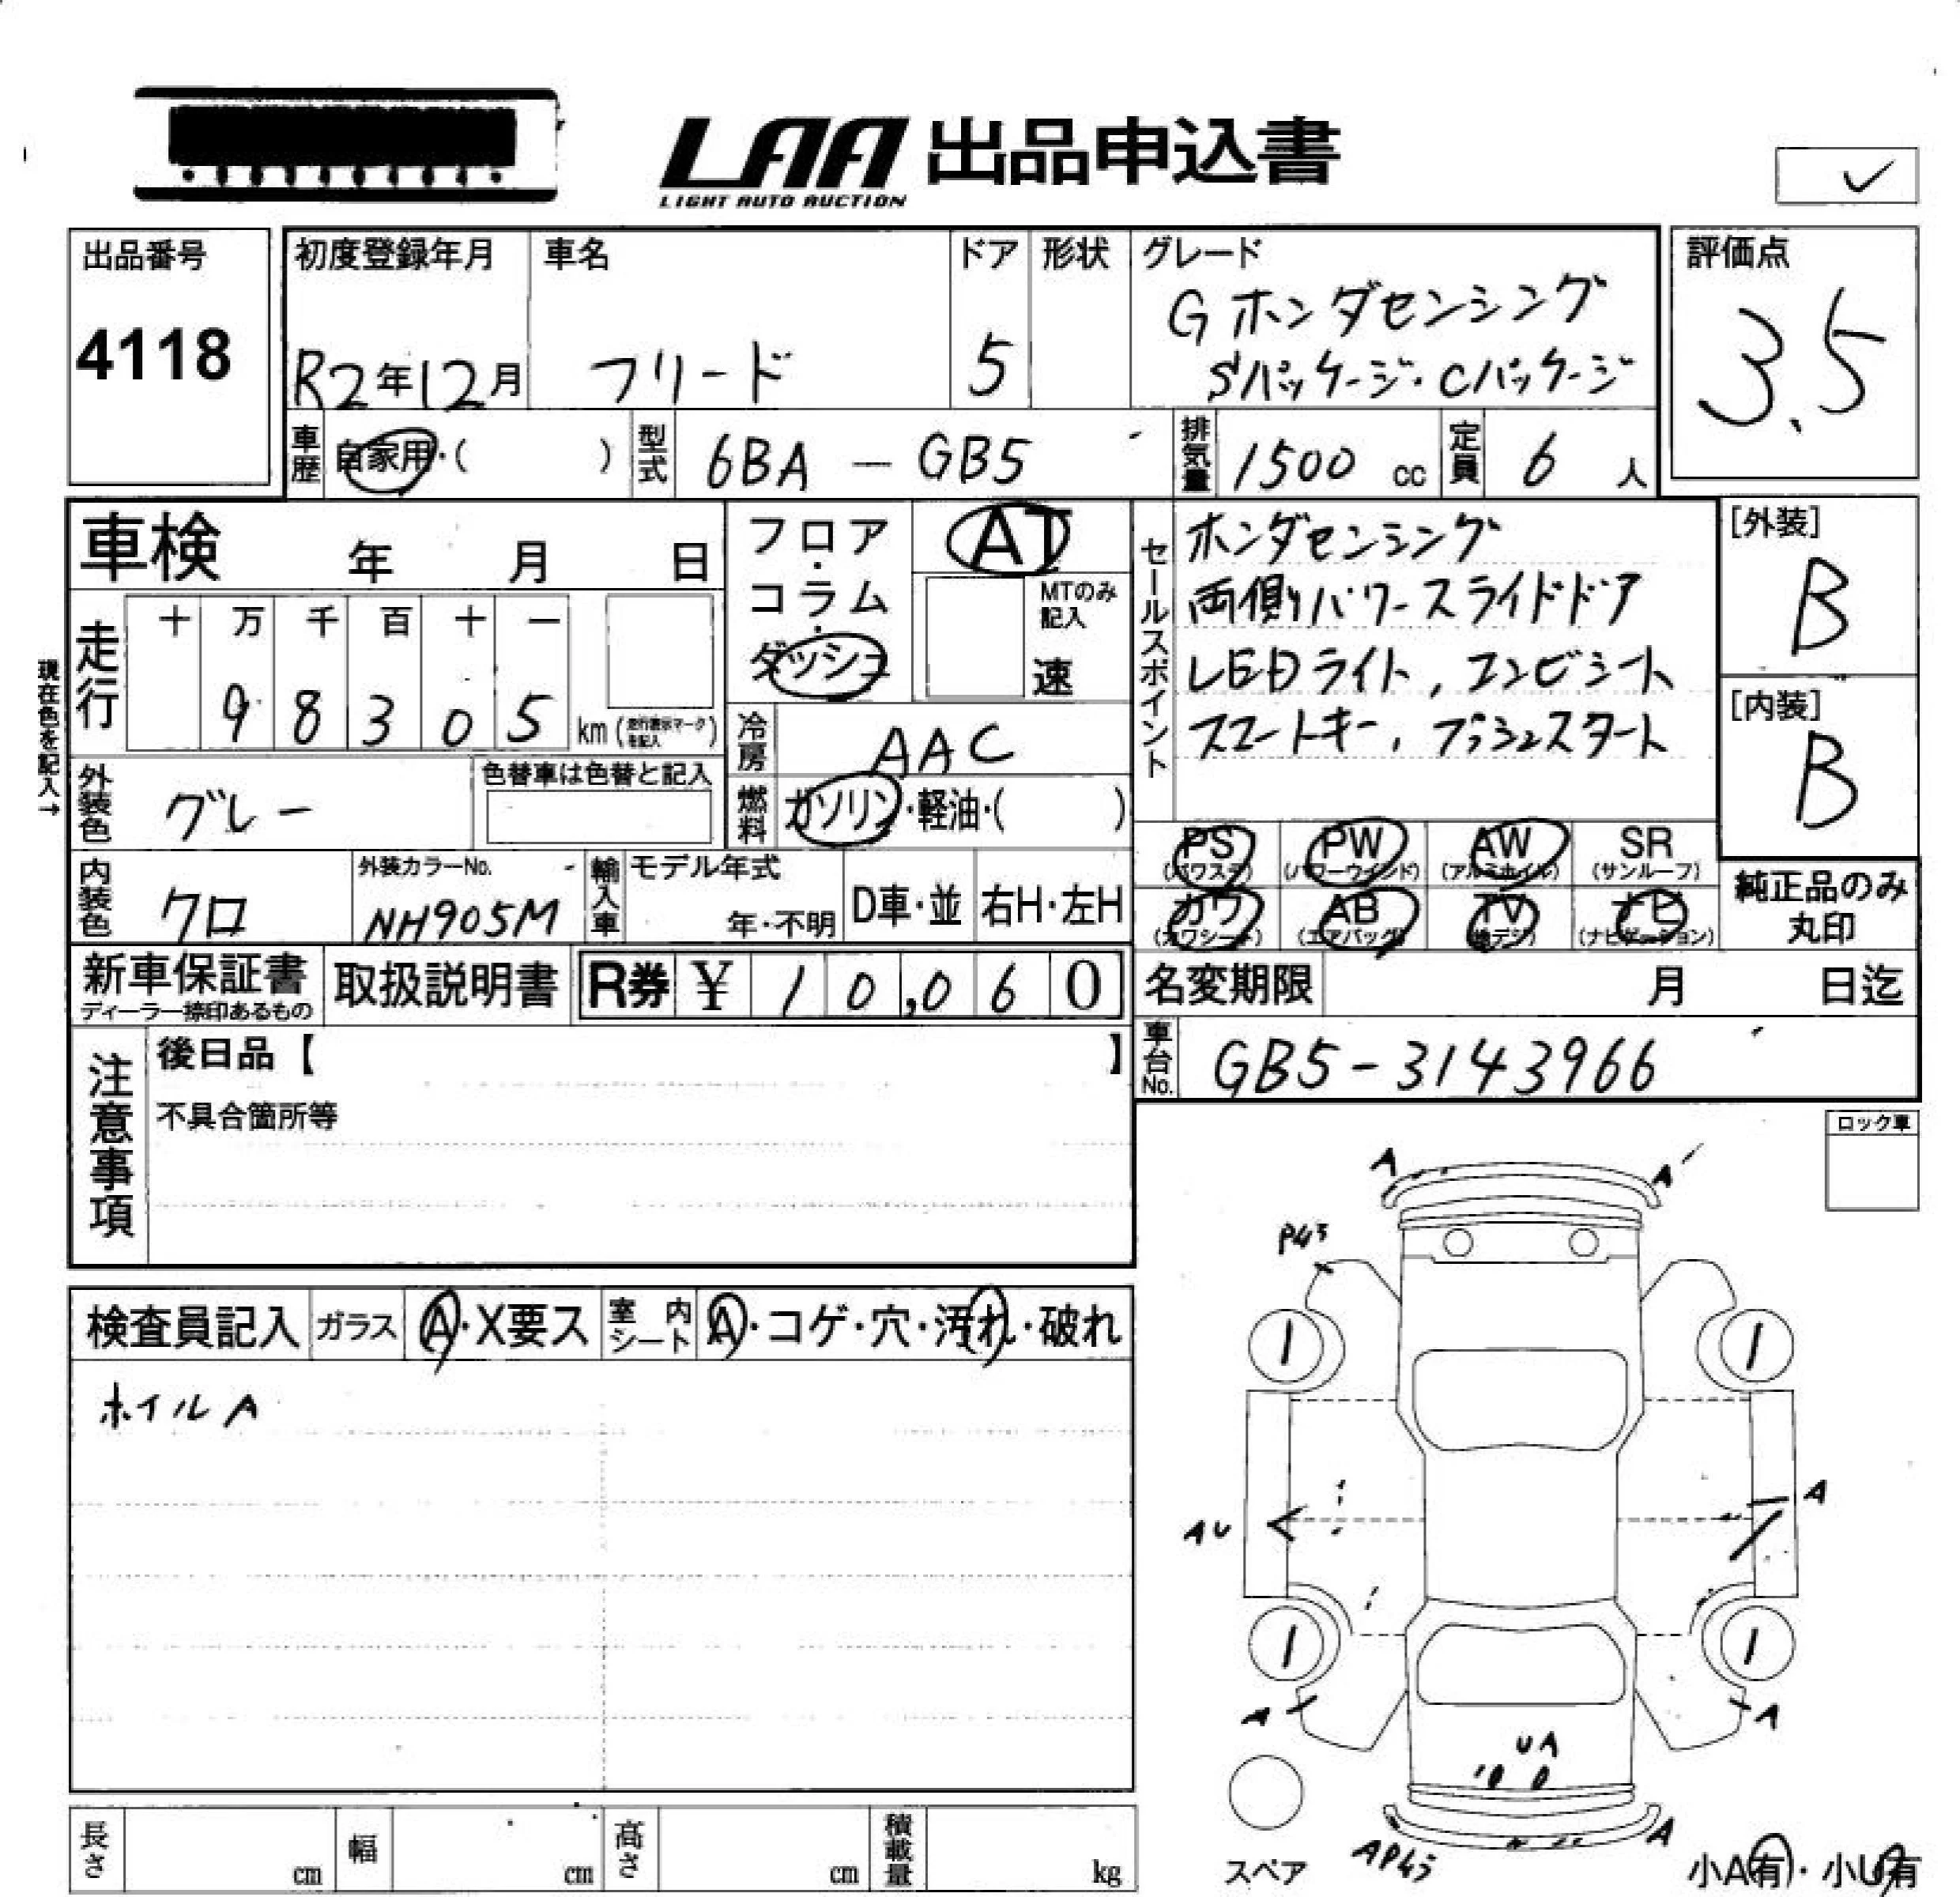 LAA 出品申込書
LIGHT AUTO AUCTION
✓
出品番号
4118
初度登録年月
R2年12月
車名
フリード
ドア
5
形状
グレード
G ホンダセンシング
Sパッケージ・Cパッケージ
評価点
3.5
車歴
自家用・( )
型式
6BA - GB5
排気量
1500 cc
定員
6 人
車検 年 月 日
フロア・コラム・ダッシュ
AT
MTのみ記入
速
セールスポイント
ホンダセンシング
両側パワースライドドア
LEDライト, コンビシート
スマートキー, プッシュスタート
[外装]
B
[内装]
B
現在色を記入→
走行
十 万 千 百 十 一
9 8 3 0 5 km (走行表示マークを記入)
冷房
AAC
燃料
ガソリン・軽油・( )
外装色
グレー
色替車は色替と記入
内装色
クロ
外装カラーNo.
NH905M
輸入車
モデル年式
年・不明
D車・並
右H・左H
PS (パワステ)
PW (パワーウインド)
AW (アルミホイル)
SR (サンルーフ)
カワ (カワシート)
AB (エアバッグ)
TV (地デジ)
ナビ (ナビゲーション)
純正品のみ丸印
新車保証書
ディーラー捺印あるもの
取扱説明書
R券 ¥ 10,060
名変期限 月 日迄
車台No.
GB5-3143966
注意事項
後日品【 】
不具合箇所等
ロック車
検査員記入
ガラス
A・X要ス
室内シート
A・コゲ・穴・汚れ・破れ
ホイルA
A
A
1
1
AU
A
1
1
A
A
UA
A
スペア
小A有・小U有
長さ cm
幅 cm
高さ cm
積載量 kg